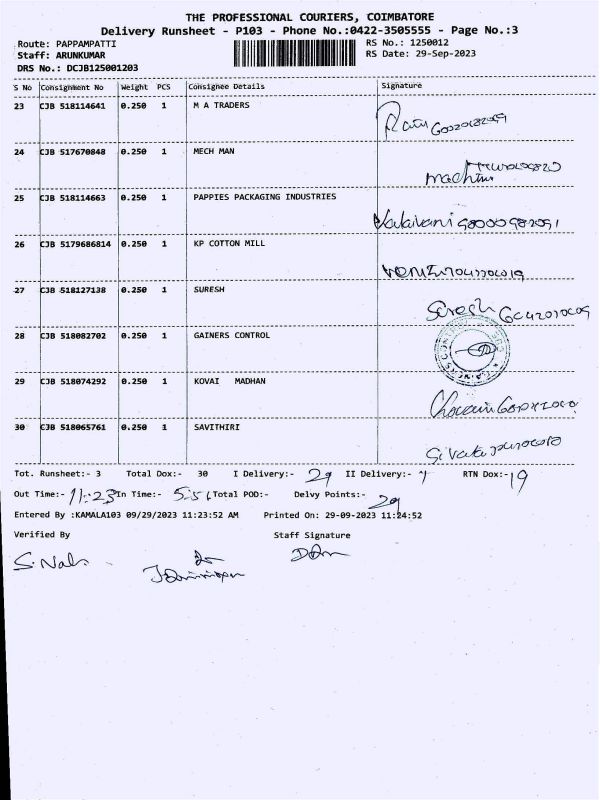 THE PROFESSIONAL COURIERS, COIMBATORE
Delivery Runsheet - P103 - Phone No.:0422-3505555 - Page No.:3
Route: PAPPAMPATTI RS No.: 1250012
Staff: ARUNKUMAR RS Date: 29-Sep-2023
DRS No.: DCJB125001203
S No Consignment No Weight PCS Consignee Details Signature
23 CJB 518114641 0.250 1 M A TRADERS
24 CJB 517670848 0.250 1 MECH MAN
25 CJB 518114663 0.250 1 PAPPIES PACKAGING INDUSTRIES
26 CJB 5179686814 0.250 1 KP COTTON MILL
27 CJB 518127138 0.250 1 SURESH
Suresh
28 CJB 518082702 0.250 1 GAINERS CONTROL
29 CJB 518074292 0.250 1 KOVAI MADHAN
30 CJB 518065761 0.250 1 SAVITHIRI
Tot. Runsheet:- 3 Total Dox:- 30 I Delivery:- 29 II Delivery:- RTN Dox:- 19
Out Time:- 11.23 In Time:- 5.51 Total POD:- Delvy Points:- 29
Entered By :KAMALA103 09/29/2023 11:23:52 AM Printed On: 29-09-2023 11:24:52
Verified By Staff Signature